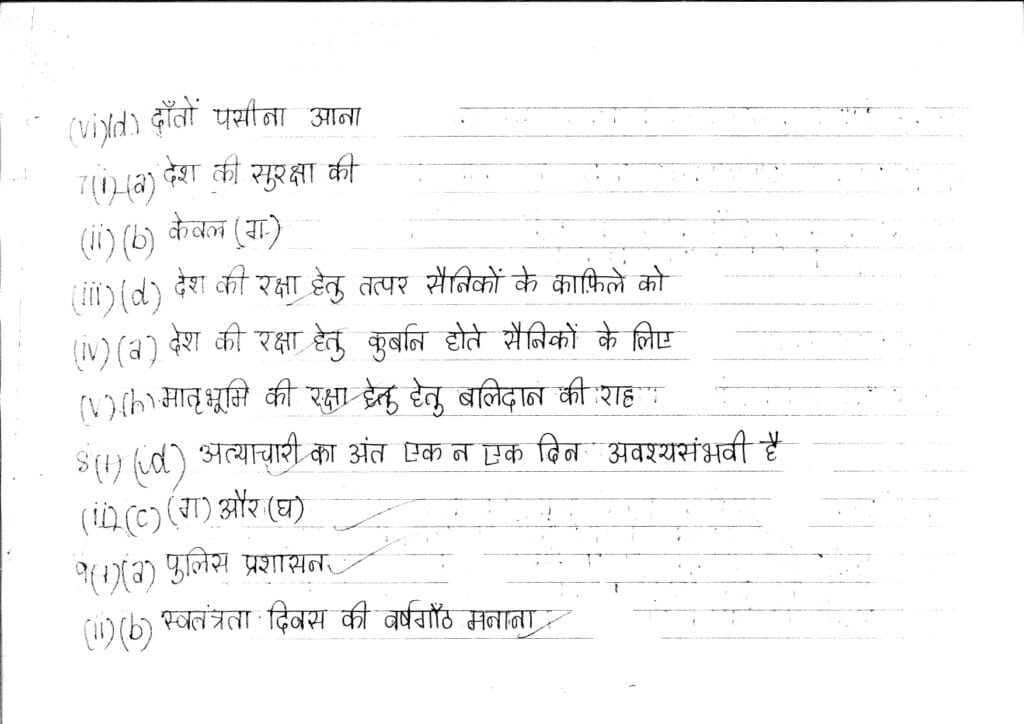 (vi)(d) दाँतों पसीना आना
7(i)(a) देश की सुरक्षा की
(ii)(b) केवल (ग)
(iii)(d) देश की रक्षा हेतु तत्पर सैनिकों के काफिले को
(iv)(a) देश की रक्षा हेतु कुर्बान होते सैनिकों के लिए
(v)(b) मातृभूमि की रक्षा हेतु हेतु बलिदान की राह
8(i)(d) अत्याचारी का अंत एक न एक दिन अवश्यसंभवी है
(ii)(c) (ग) और (घ)
9(i)(a) पुलिस प्रशासन
(ii)(b) स्वतंत्रता दिवस की वर्षगाँठ मनाना